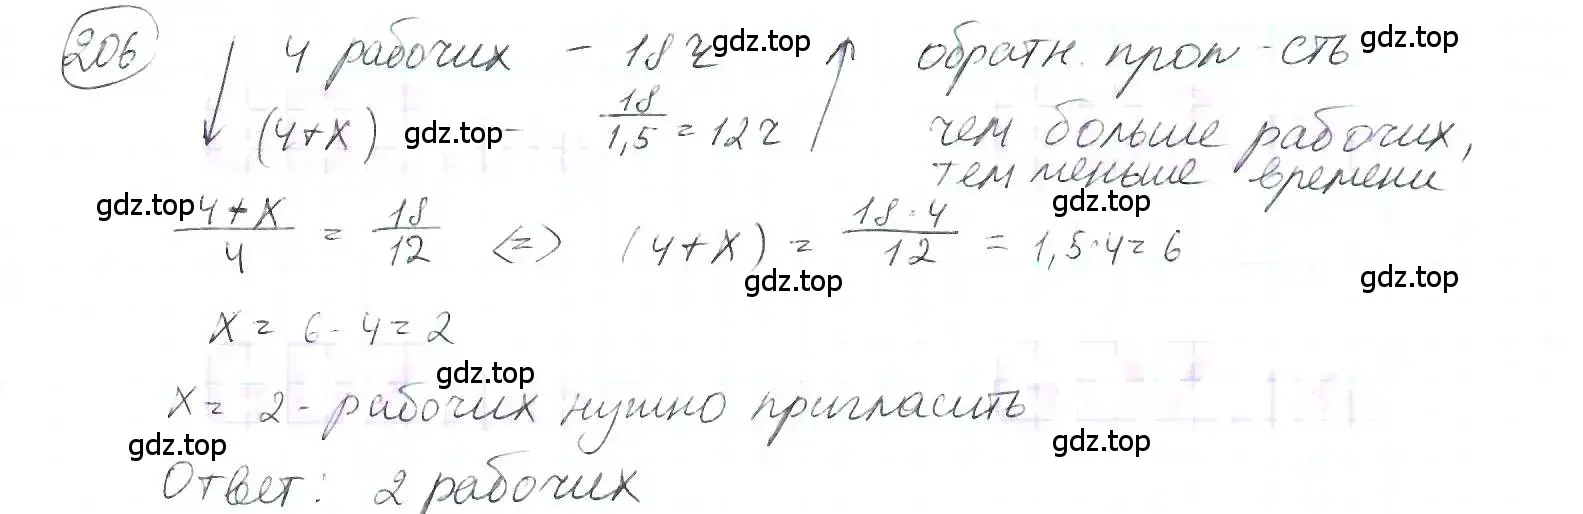 206 4 рабочих - 18 ч обратн. проп-сть
(4+x) - 18/1,5 = 12 ч чем больше рабочих,
тем меньше времени
4+x/4 = 18/12 <=> (4+x) = 18·4/12 = 1,5·4 = 6
x = 6 - 4 = 2
x = 2 - рабочих нужно пригласить
Ответ: 2 рабочих
gdz.top
gdz.top
gdz.top
gdz.top
gdz.top
gdz.top
gdz.top
gdz.top
gdz.top
gdz.top